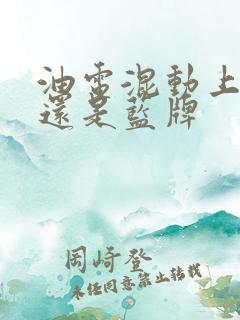 油電混動上
還是藍牌
岡崎登
未经同意禁止转载